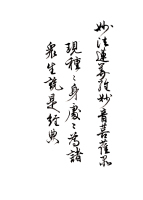 妙法蓮華經妙音菩薩品
現種〻身處〻為諸
眾生說是經典